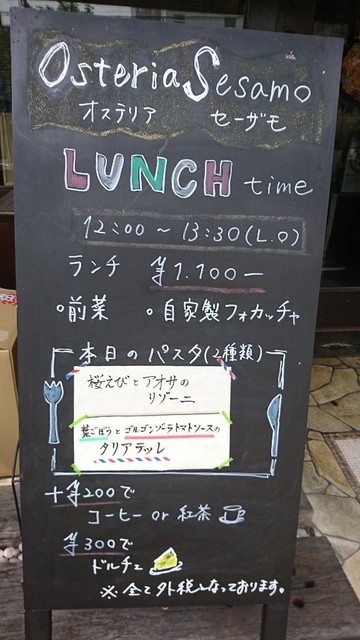 Osteria Sesamo
オステリア セーザモ
LUNCH time
12:00 ~ 13:30(L.O)
ランチ ¥1.100ー
・前菜 ・自家製フォカッチャ
本日のパスタ(2種類)
桜えびとアオサの
リゾーニ
葉ごぼうとゴルゴンゾーラトマトソースの
タリアテッレ
+¥200で
コーヒー or 紅茶
¥300で
ドルチェ
※全て外税となっております。